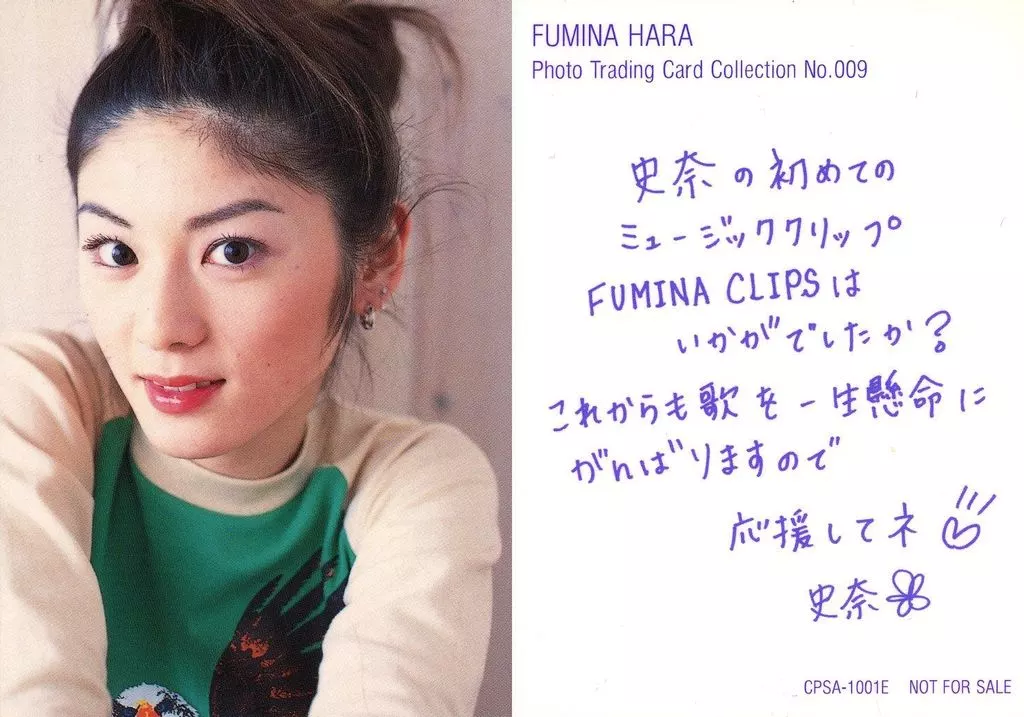 FUMINA HARA
Photo Trading Card Collection No.009
史奈の初めての
ミュージッククリップ
FUMINA CLIPSは
いかがでしたか?
これからも歌を一生懸命に
がんばりますので
応援してネ
史奈
CPSA-1001E NOT FOR SALE